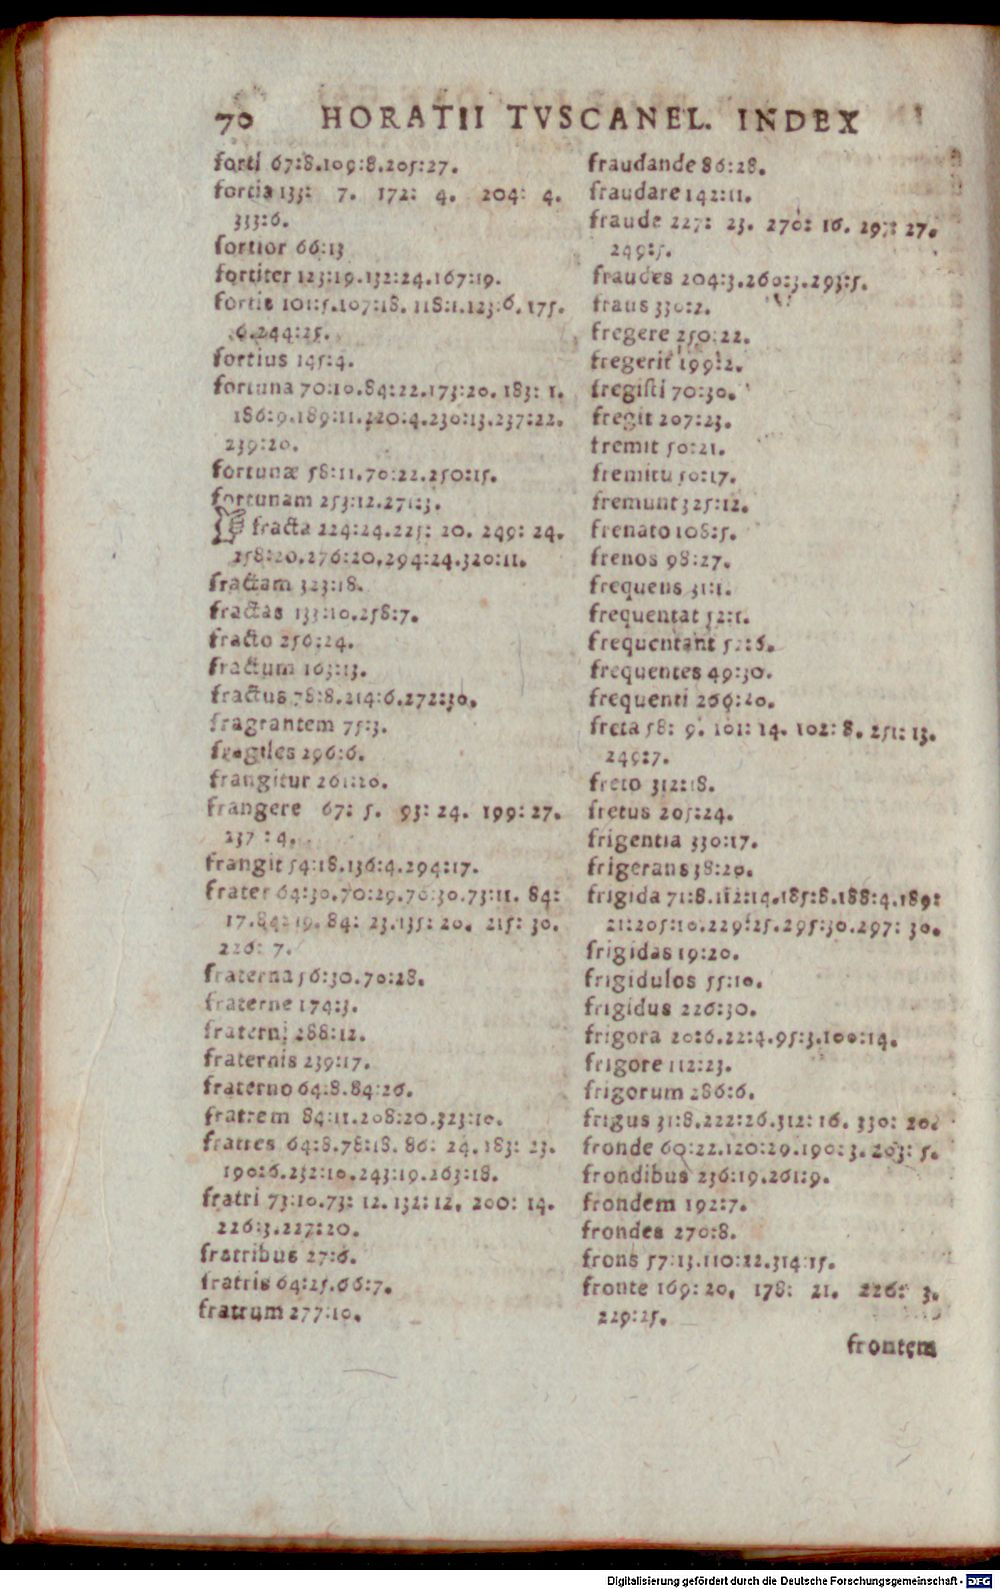 70 HORATII TVSCANEL. INDEX
forti 67:8.109:8.205:27.
fortia 133: 7. 172: 4. 204: 4.
333:6.
fortior 66:13
fortiter 123:19.132:24.167:19.
fortis 101:5.107:18. 118:1.123:6. 175.
6.244:25.
fortius 145:4.
fortuna 70:10.84:22.173:20. 183: 1.
186:9.189:11.220:4.230:13.237:22.
239:20.
fortunæ 58:11.70:22.250:15.
fortunam 253:12.271:3.
fracta 224:24.225: 20. 249: 24.
258:20.276:20.294:24.320:11.
fractam 323:18.
fractas 133:10.258:7.
fracto 256:24.
fractum 163:13.
fractus 78:8.214:6.272:30.
fragrantem 75:3.
fragiles 296:6.
frangitur 261:26.
frangere 67: 5. 93: 24. 199: 27.
237 : 4.
frangit 54:18.136:4.294:17.
frater 64:30.70:29.70:30.73:11. 84:
17.84:19. 84: 23.135: 20. 215: 30.
226: 7.
fraterna 56:30.70:28.
fraterne 174:3.
fraterni 288:12.
fraternis 239:17.
fraterno 64:8.84:26.
fratrem 84:11.208:20.323:10.
fratres 64:8.78:18. 86: 24. 183: 23.
190:6.232:10.243:19.263:18.
fratri 73:10.73: 12. 132: 12. 200: 14.
226:3.227:20.
fratribus 27:6.
fratris 64:25.66:7.
fratrum 277:10.
fraudande 86:28.
fraudare 142:11.
fraude 227: 23. 270: 16. 297: 27.
249:5.
fraudes 204:3.260:3.293:5.
fraus 330:2.
fregere 250:22.
fregerit 199:2.
fregisti 70:30.
fregit 207:23.
fremit 50:21.
fremitu 50:17.
fremunt 325:12.
frenato 108:5.
frenos 98:27.
frequens 31:1.
frequentat 52:1.
frequentant 52:6.
frequentes 49:30.
frequenti 266:20.
freta 58: 9. 101: 14. 102: 8. 251: 13.
249:7.
freto 312:18.
fretus 205:24.
frigentia 330:17.
frigerans 38:20.
frigida 71:8.112:14.185:8.188:4.189:
21:205:10.229:25.295:30.297: 30.
frigidas 19:20.
frigidulos 55:10.
frigidus 226:30.
frigora 20:6.22:4.95:3.100:14.
frigore 112:23.
frigorum 286:6.
frigus 31:8.222:26.312: 16. 330: 20.
fronde 60:22.120:29.190:3. 203: 5.
frondibus 236:19.261:9.
frondem 192:7.
frondes 270:8.
frons 57:13.110:22.314:15.
fronte 169: 20. 178: 21. 226: 3.
229:25.
frontem
Digitalisierung gefördert durch die Deutsche Forschungsgemeinschaft - DFG